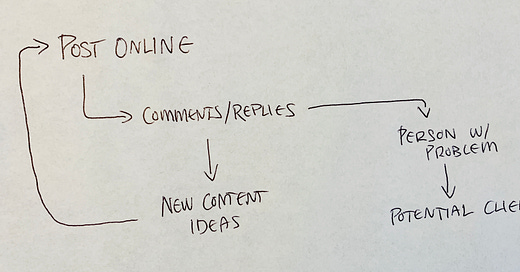 POST ONLINE
COMMENTS/REPLIES
PERSON W/
PROBLEM
NEW CONTENT
IDEAS
POTENTIAL